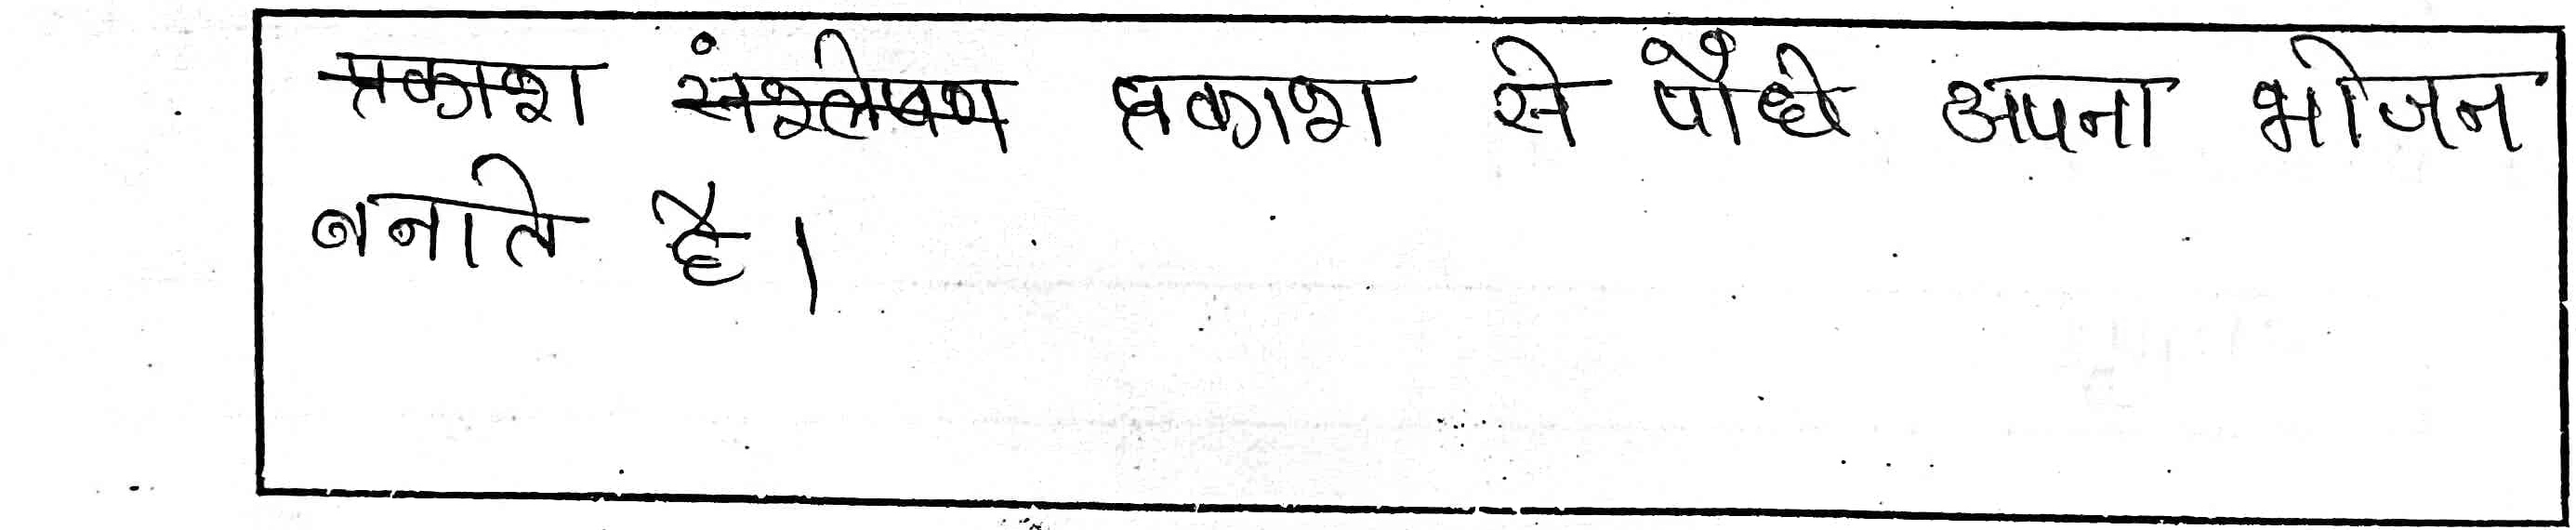 प्रकाश संश्लेषण प्रकाश से पौधे अपना भोजन
बनाते है।